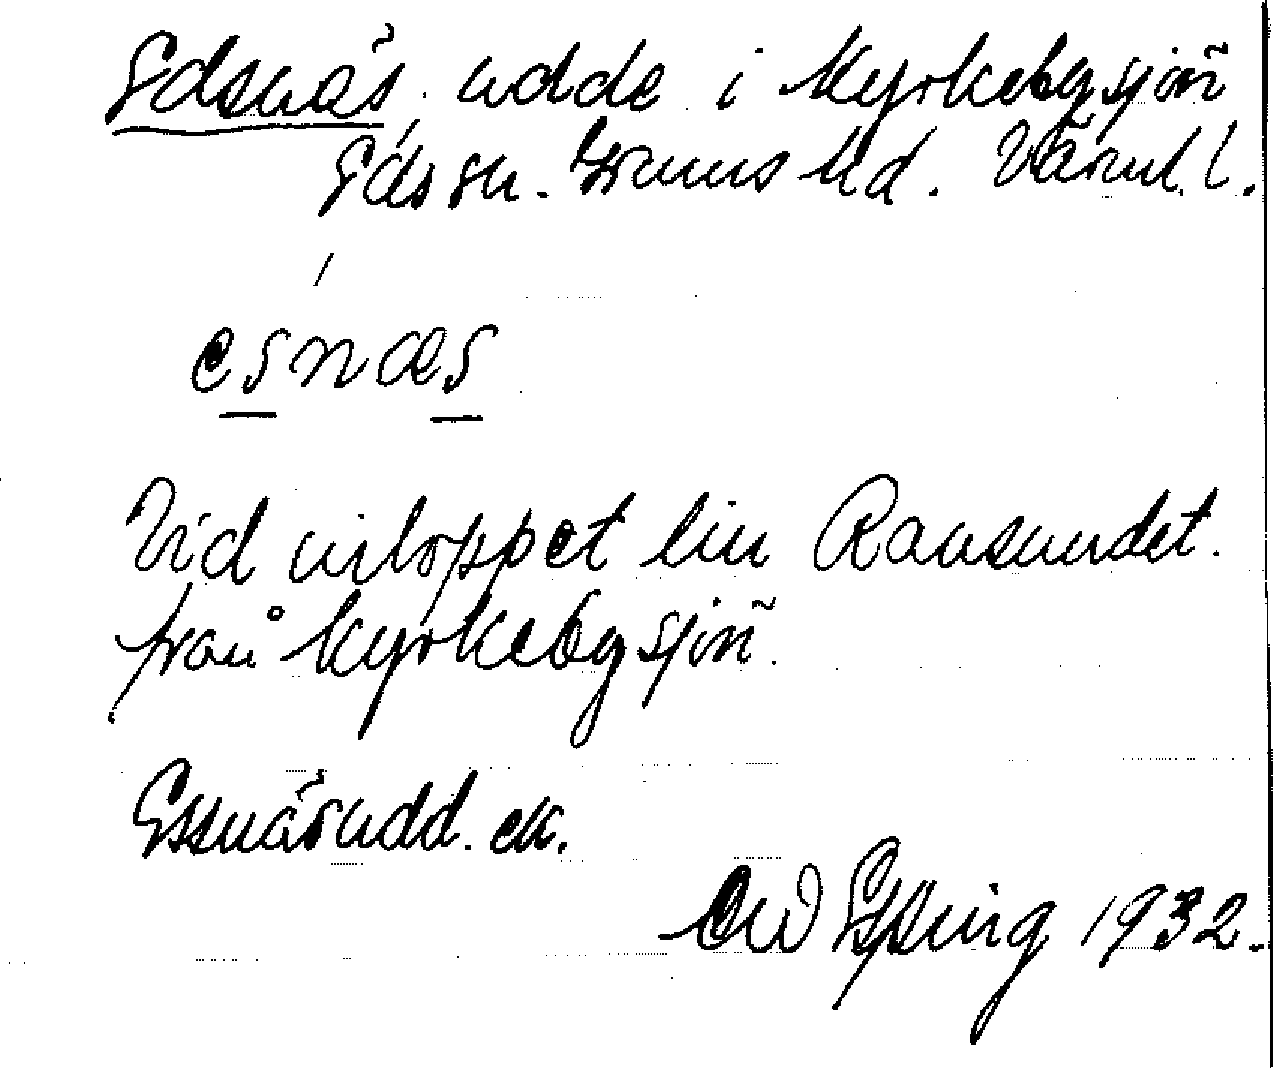 Edsnäs. udde i Kyrkebysjön
Eds sn. Grums hd. Värml. l.
esnæs
Vid utloppet till Ransundet.
från Kyrkebysjön.
Essnäsudd. ek.
1932.